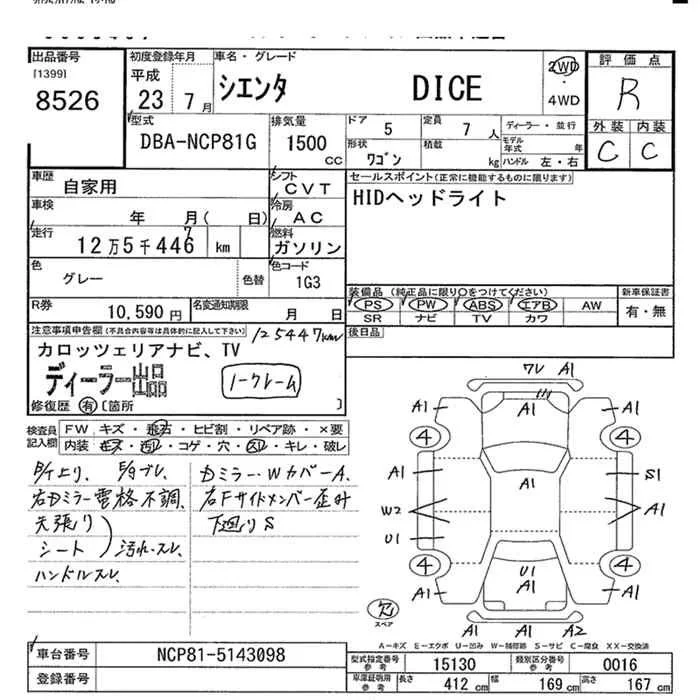 出品番号
[1399]
8526
初度登録年月
平成
23年 7月
車名・グレード
シエンタ DICE
2WD
・
4WD
評価点
R
外装 内装
C C
型式
DBA-NCP81G
排気量
1500
CC
ドア 5
定員 7 人
形状 ワゴン
積載 kg
ディーラー・並行
モデル年式 年
ハンドル 左・右
車歴
自家用
シフト
CVT
セールスポイント(正常に機能するものに限ります)
HIDヘッドライト
車検
年 月( 日)
冷房
AC
走行
12万5千446 km
7
燃料
ガソリン
色
グレー
色替
色コード
1G3
装備品(純正品に限り○をつけてください)
新車保証書
PS PW ABS エアB AW
SR ナビ TV カワ
有・無
R券
10,590円
名変通知期限
月 日
後日品
注意事項申告欄(不具合内容等は具体的に記入して下さい)
125447km
カロッツェリアナビ、TV
ディーラー出品
ノークレーム
修復歴 有 〔箇所 〕
検査員記入欄
FW キズ・飛石・ヒビ割・リペア跡・×要
内装 キズ・汚れ・コゲ・穴・スレ・キレ・破レ
右Dミラー電格不調、
天張り
シート
汚れ・スレ、
ハンドルスレ、
Dミラー・WカバーA、
右Fサイドメンバー歪み
下廻りS
ワレ A1
A1 A1 A1
4 4
A1 A1 S1
W2 A1
U1
4 U1 4
A1 A1 A1
欠
スペア
A1 A2
A-キズ E-エクボ U-凹み W-補修跡 S-サビ C-腐食 XX-交換済
車台番号
NCP81-5143098
登録番号
型式指定番号
参考
15130
類別区分番号
参考
0016
車庫証明用
参考
長さ 412 cm
幅 169 cm
高さ 167 cm